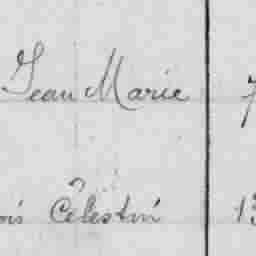 Jean Marie 7
ois Célestin 13